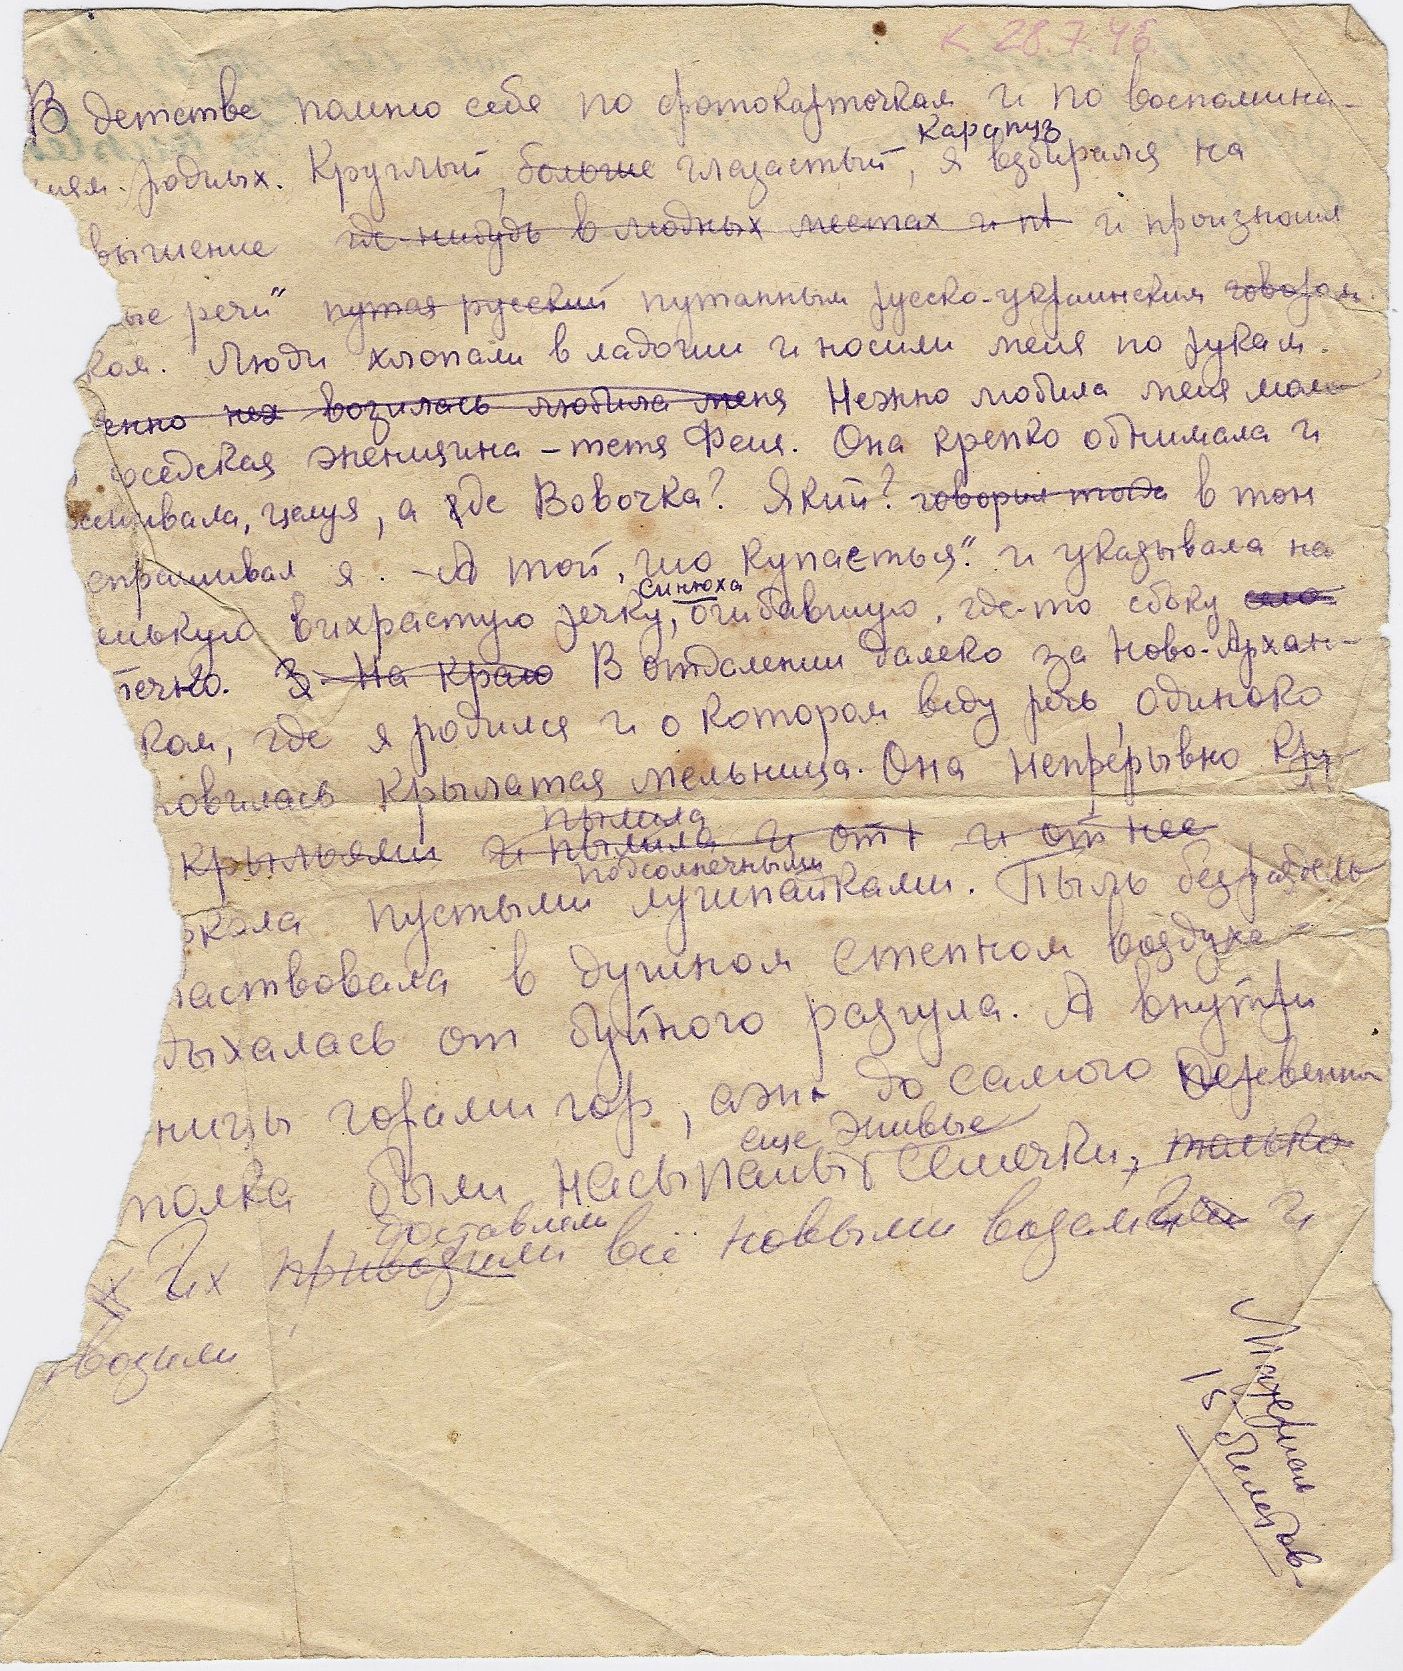 К 28.7.46.
В детстве помню себя по фотокарточкам и по воспомина-
ниям родных. Круглый, большие глазастый карапуз, я взбирался на
вышение где-нибудь в людных местах и и произносил
ые речи" путая русский путанным русско-украинским говором
ком. Люди хлопали в ладоши и носили меня по рукам.
енно нея возилась любила меня Нежно любила меня моло
оседская женщина – тетя Феня. Она крепко обнимала и
шивала, целуя, а где Вовочка? Який? говорил тогда в тон
спрашивал я. – А той, шо купаетья." и указывала на
енькую вихрастую речку, Синюха огибавшую, где-то сбоку село
течко. З На краю В отдалении далеко за Ново-Архан-
ком, где я родился и о котором веду речь, одиноко
новилась крылатая мельница. Она непрерывно кру
крыльями и пылила пылила и от и от нее
окола пустыми подсолнечными лушпайками. Пыль безраздель
частвовала в душном степном воздухе
дыхалась от буйного разгула. А внутри
ницы горами гор, аж до самого деревянно
полка были насыпаны еще живые семечки, только
Их привозили доставляли всё новыми возами и
возили
Материал
15 билетов.